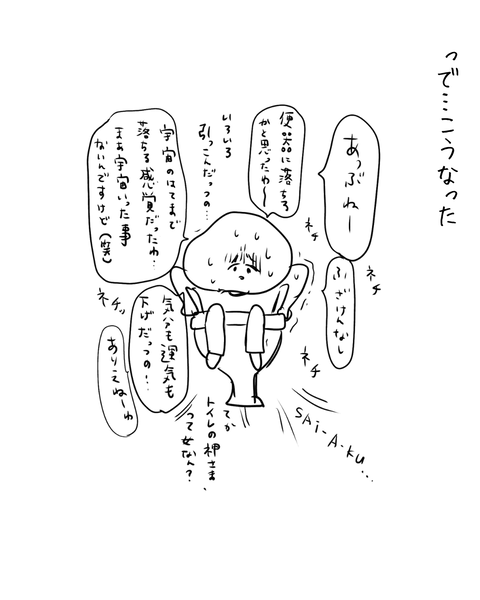 って…こうなった
あっぶねー
ネチ
ネチ
ふざけんなし
ネチ
便器に落ちる
かと思ったわ〜
いろいろ
引っこんだっつの…
宇宙のはてまで
落ちる感覚だったわ…
まぁ宇宙いった事
ないんですけど(笑)
ネチッ
気分も運気も
下げだっつの!…
ありえねーわ
SAi-A-KU...
てか
トイレの神さま
って女なん?